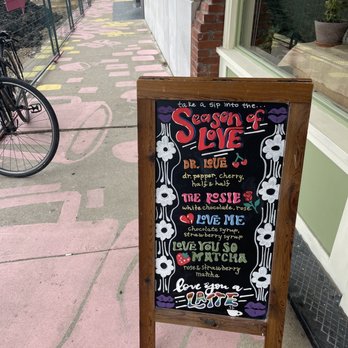 take a sip into the...
Season of
LOVE
DR. LOVE
dr. pepper, cherry,
half & half
THE ROSIE
white chocolate, rose
LOVE ME
chocolate syrup,
strawberry syrup
LOVE YOU SO
MATCHA
rose & strawberry
matcha
love you a
LATTE